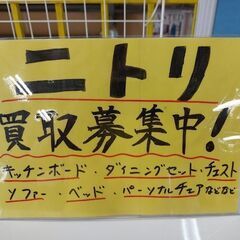 ニトリ
買取募集中!
キッチンボード・ダイニングセット・チェスト
ソファー・ベッド・パーソナルチェアなどなど